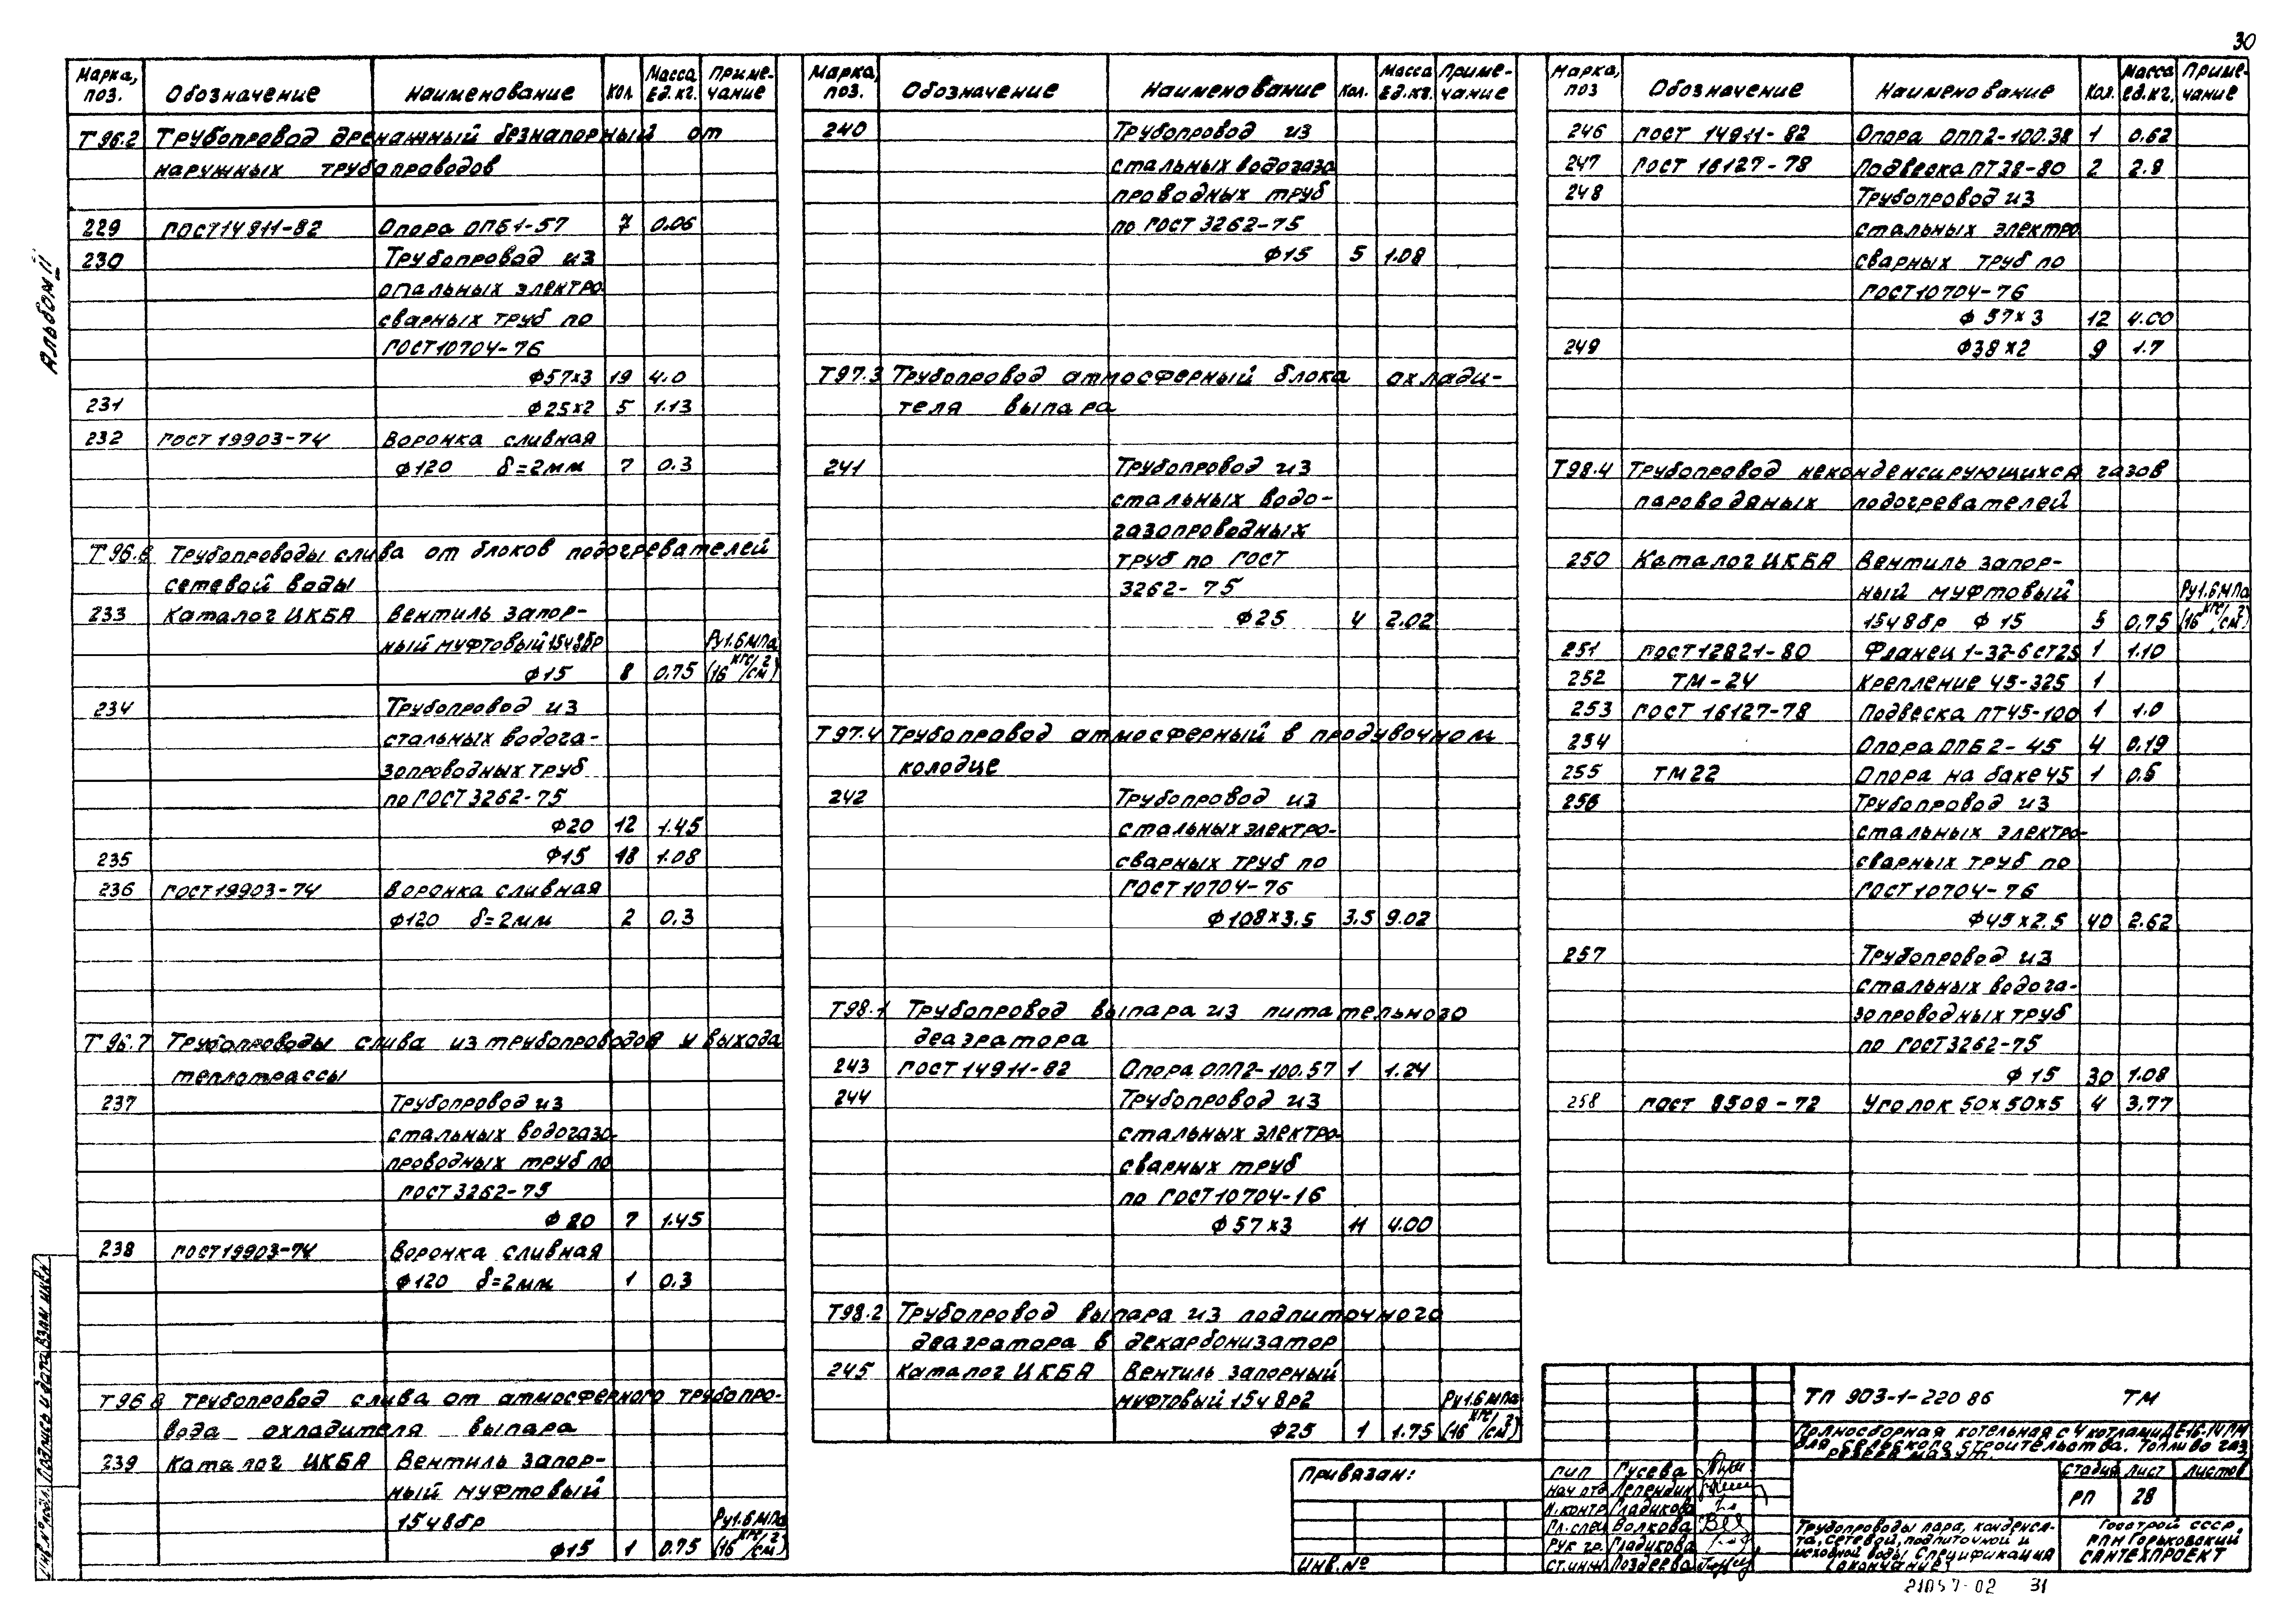 30
Альбом II
Марка, поз. Обозначение Наименование Кол. Масса Ед.кг. Приме-чание
Т96.2 Трубопровод дренажный безнапорный от
наружных трубопроводов
229 ГОСТ 14911-82 Опора ОПБ1-57 7 0.06
230 Трубопровод из
опальных электро
сварных труб по
ГОСТ 10704-76
Ф57х3 19 4.0
231 Ф25х2 5 1.13
232 ГОСТ 19903-74 Воронка сливная
Ф120 δ=2мм 7 0.3
Т96.6 Трубопроводы слива от блоков подогревателей
сетевой воды
233 Каталог ЦКБА Вентиль запор-
ный муфтовый 15ч8бр Ру1.6МПа
Ф15 8 0.75 (16 кгс/см²)
234 Трубопровод из
стальных водога-
зопроводных труб
по ГОСТ 3262-75
Ф20 12 1.45
235 Ф15 18 1.08
236 ГОСТ 19903-74 Воронка сливная
Ф120 δ=2мм 2 0.3
Т96.7 Трубопроводы слива из трубопроводов у выхода
теплотрассы
237 Трубопровод из
стальных водогазо-
проводных труб по
ГОСТ 3262-75
Ф20 7 1.45
238 ГОСТ 19903-74 Воронка сливная
Ф120 δ=2мм 1 0.3
Т96 8 Трубопровод слива от атмосферного трубопро-
вода охладителя выпара
239 Каталог ЦКБА Вентиль запор-
ный муфтовый
15ч8бр Ру1.6МПа
Ф15 1 0.75 (16 кгс/см²)
Марка, поз. Обозначение Наименование Кол. Масса Ед.кг. Приме-чание
240 Трубопровод из
стальных водогазо
проводных труб
по ГОСТ 3262-75
Ф15 5 1.08
Т97.3 Трубопровод атмосферный блока охлади-
теля выпара
241 Трубопровод из
стальных водо-
газопроводных
труб по ГОСТ
3262-75
Ф25 4 2.02
Т97.4 Трубопровод атмосферный в продувочном
колодце
242 Трубопровод из
стальных электро-
сварных труб по
ГОСТ 10704-76
Ф108х3.5 3.5 9.02
Т98.1 Трубопровод выпара из питательного
деаэратора
243 ГОСТ 14911-82 Опора ОПП2-100.57 1 1.24
244 Трубопровод из
стальных электро-
сварных труб
по ГОСТ 10704-16
Ф57х3 11 4.00
Т98.2 Трубопровод выпара из подпиточного
деаэратора в декарбонизатор
245 Каталог ЦКБА Вентиль запорный
муфтовый 15ч8р2 Ру1.6МПа
Ф25 1 1.75 (16 кгс/см²)
Марка, поз Обозначение Наименование Кол. Масса ед.кг. Приме-чание
246 ГОСТ 14911-82 Опора ОПП2-100.38 1 0.62
247 ГОСТ 16127-78 Подвеска ПТ38-80 2 2.9
248 Трубопровод из
стальных электро
сварных труб по
ГОСТ 10704-76
Ф57х3 12 4.00
249 Ф38х2 9 1.7
Т98.4 Трубопровод неконденсирующихся газов
пароводяных подогревателей
250 Каталог ЦКБА Вентиль запор-
ный муфтовый Ру1.6МПа
15ч8бр Ф15 5 0,75 (16 кгс/см²)
251 ГОСТ 12821-80 Фланец 1-32-6 СТ25 1 1.10
252 ТМ-24 Крепление 45-325 1
253 ГОСТ 16127-78 Подвеска ПТ45-100 1 1.0
254 Опора ОПБ2-45 4 0.19
255 ТМ22 Опора на баке 45 1 0.5
256 Трубопровод из
стальных электро-
сварных труб по
ГОСТ 10704-76
Ф45х2.5 40 2.62
257 Трубопровод из
стальных водога-
зопроводных труб
по ГОСТ 3262-75
Ф15 30 1.08
258 ГОСТ 8509-72 Уголок 50х50х5 4 3.77
ТП 903-1-220 86 ТМ
Полносборная котельная с 4 котлами ДЕ16-14ГМ
для сельского строительства. Топливо газ,
резерв мазут.
Привязан:
Инв.№
ГИП Гусева
Нач отд Лепендин
Н.контр Гладикова
Гл.спец Волкова
Рук гр. Гладикова
Ст.инж Поздеева
Стадия Лист Листов
РП 28
Трубопроводы пара, конденса-
та, сетевой, подпиточной и
исходной воды Спецификация
(окончание)
Госстрой СССР
ГПИ Горьковский
САНТЕХПРОЕКТ
Инв.№ подл. Подпись и дата Взам инв№
21057-02 31